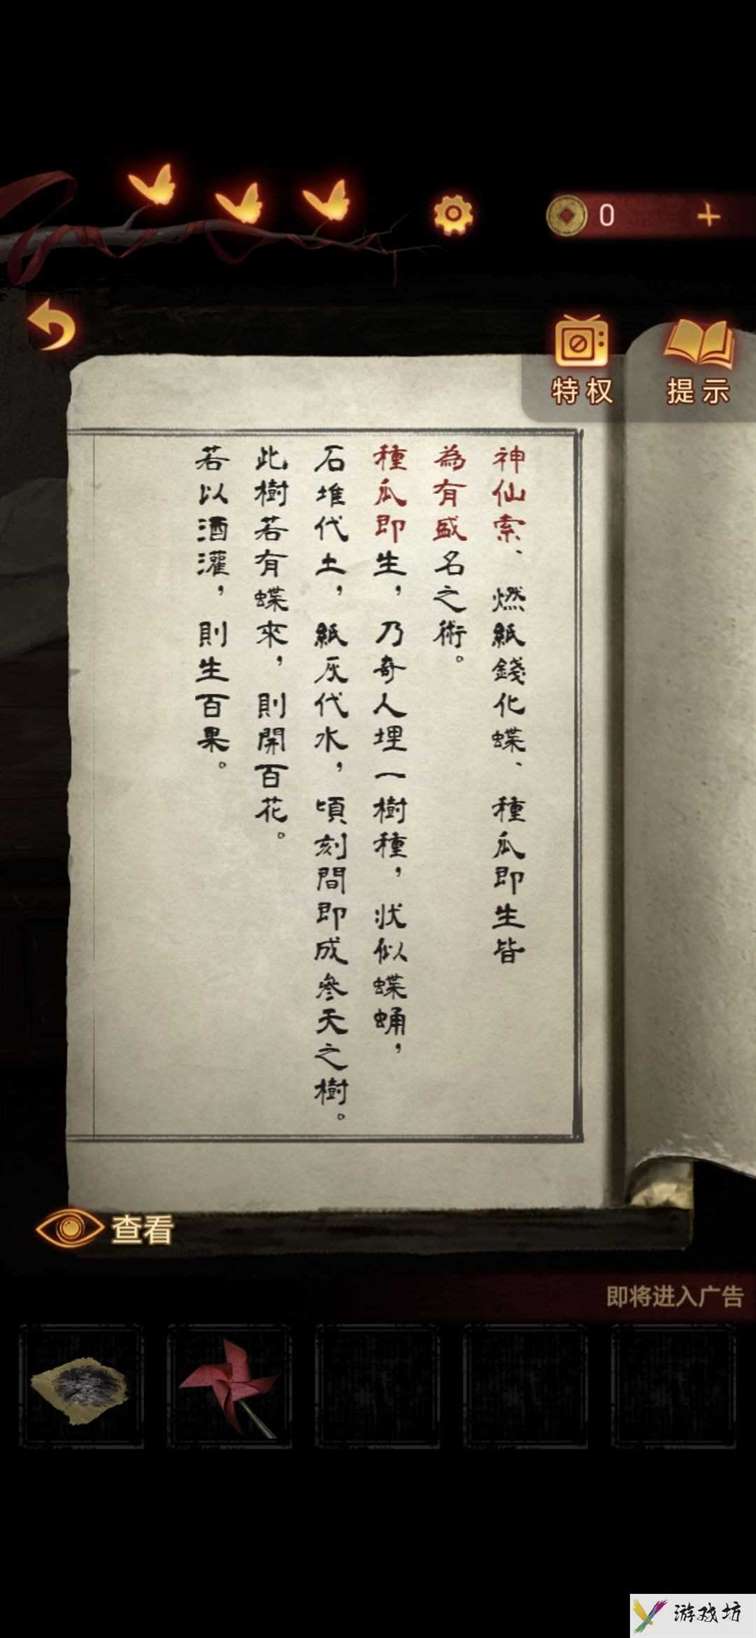 0
特权
提示
神仙索、燃紙錢化蝶、種瓜即生皆
為有盛名之術。
種瓜即生，乃奇人埋一樹種，状似蝶蛹，
石堆代土，紙灰代水，頃刻間即成參天之樹。
此樹若有蝶來，則開百花。
若以酒灌，則生百果。
查看
即将进入广告
游戏坊